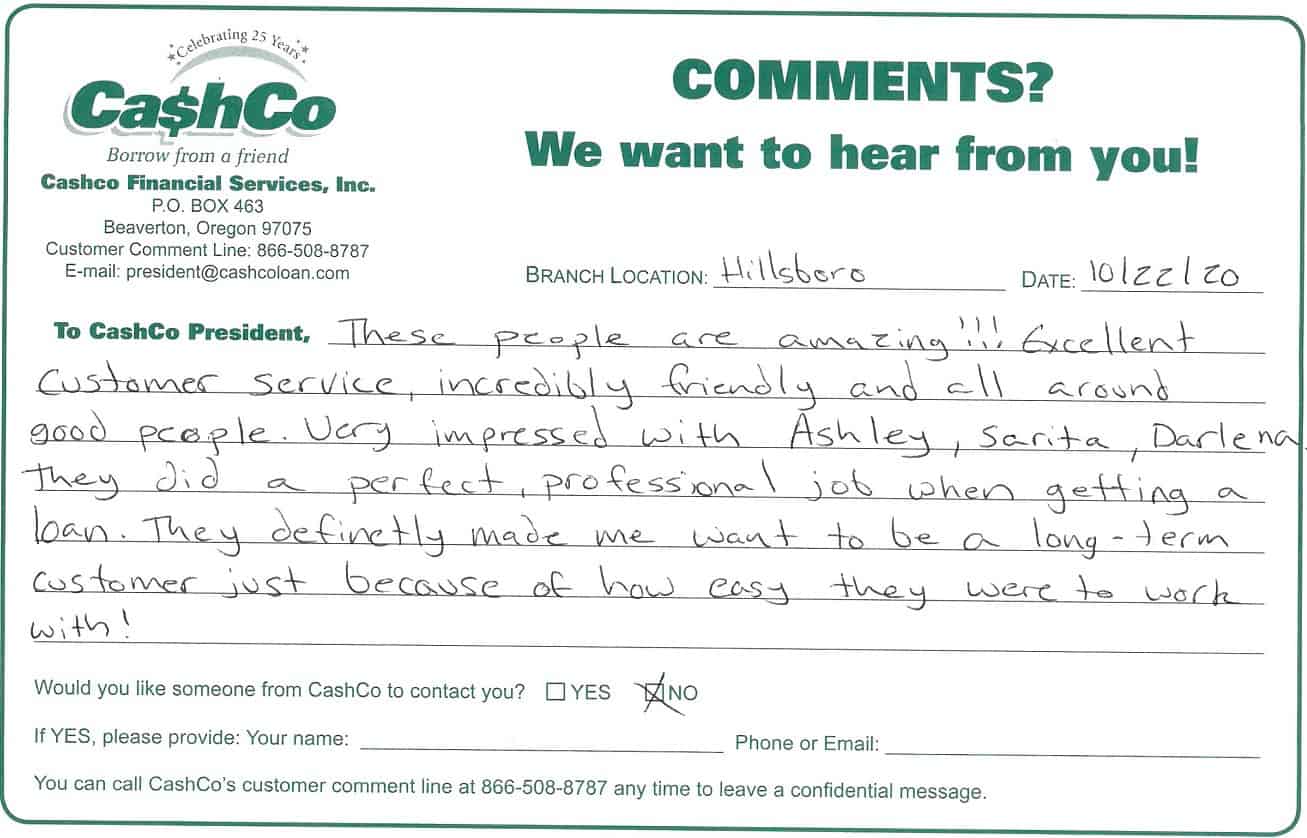 Celebrating 25 Years
Ca$hCo
Borrow from a friend
Cashco Financial Services, Inc.
P.O. BOX 463
Beaverton, Oregon 97075
Customer Comment Line: 866-508-8787
E-mail: president@cashcoloan.com
COMMENTS?
We want to hear from you!
BRANCH LOCATION: Hillsboro DATE: 10/22/20
To CashCo President, These people are amazing!!! Excellent
customer service, incredibly friendly and all around
good people. Very impressed with Ashley, Sarita, Darlena
they did a perfect, professional job when getting a
loan. They definetly made me want to be a long-term
customer just because of how easy they were to work
with!
Would you like someone from CashCo to contact you? YES NO
If YES, please provide: Your name: Phone or Email:
You can call CashCo's customer comment line at 866-508-8787 any time to leave a confidential message.